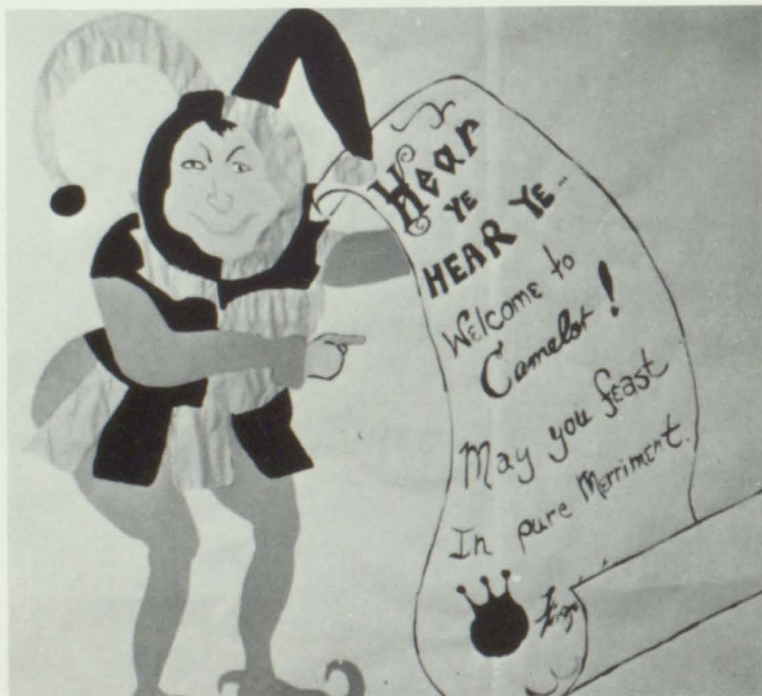 Hear
YE
HEAR YE..
Welcome to
Camelot!
May you feast
In pure Merriment.